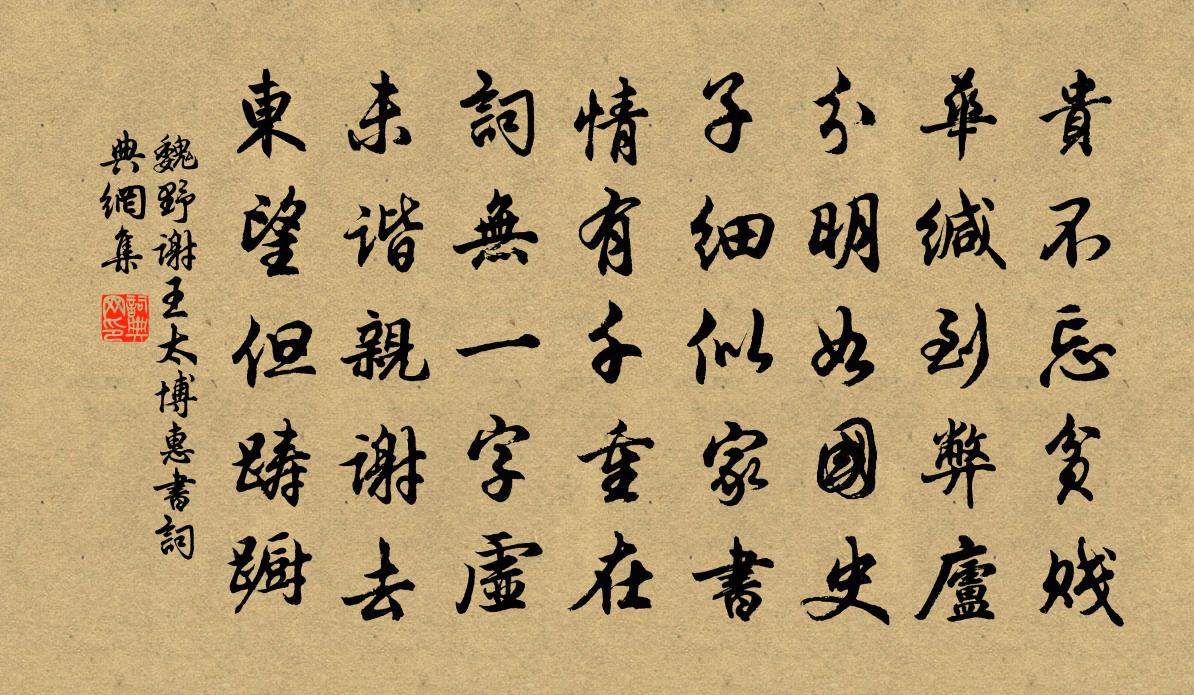 貴不忘貧賤
華緘到弊廬
分明如國史
子細似家書
情有千重在
詞無一字虛
未諧親謝去
東望但踌蹰
魏野谢王太博惠書詞
典網集
詞典
网印